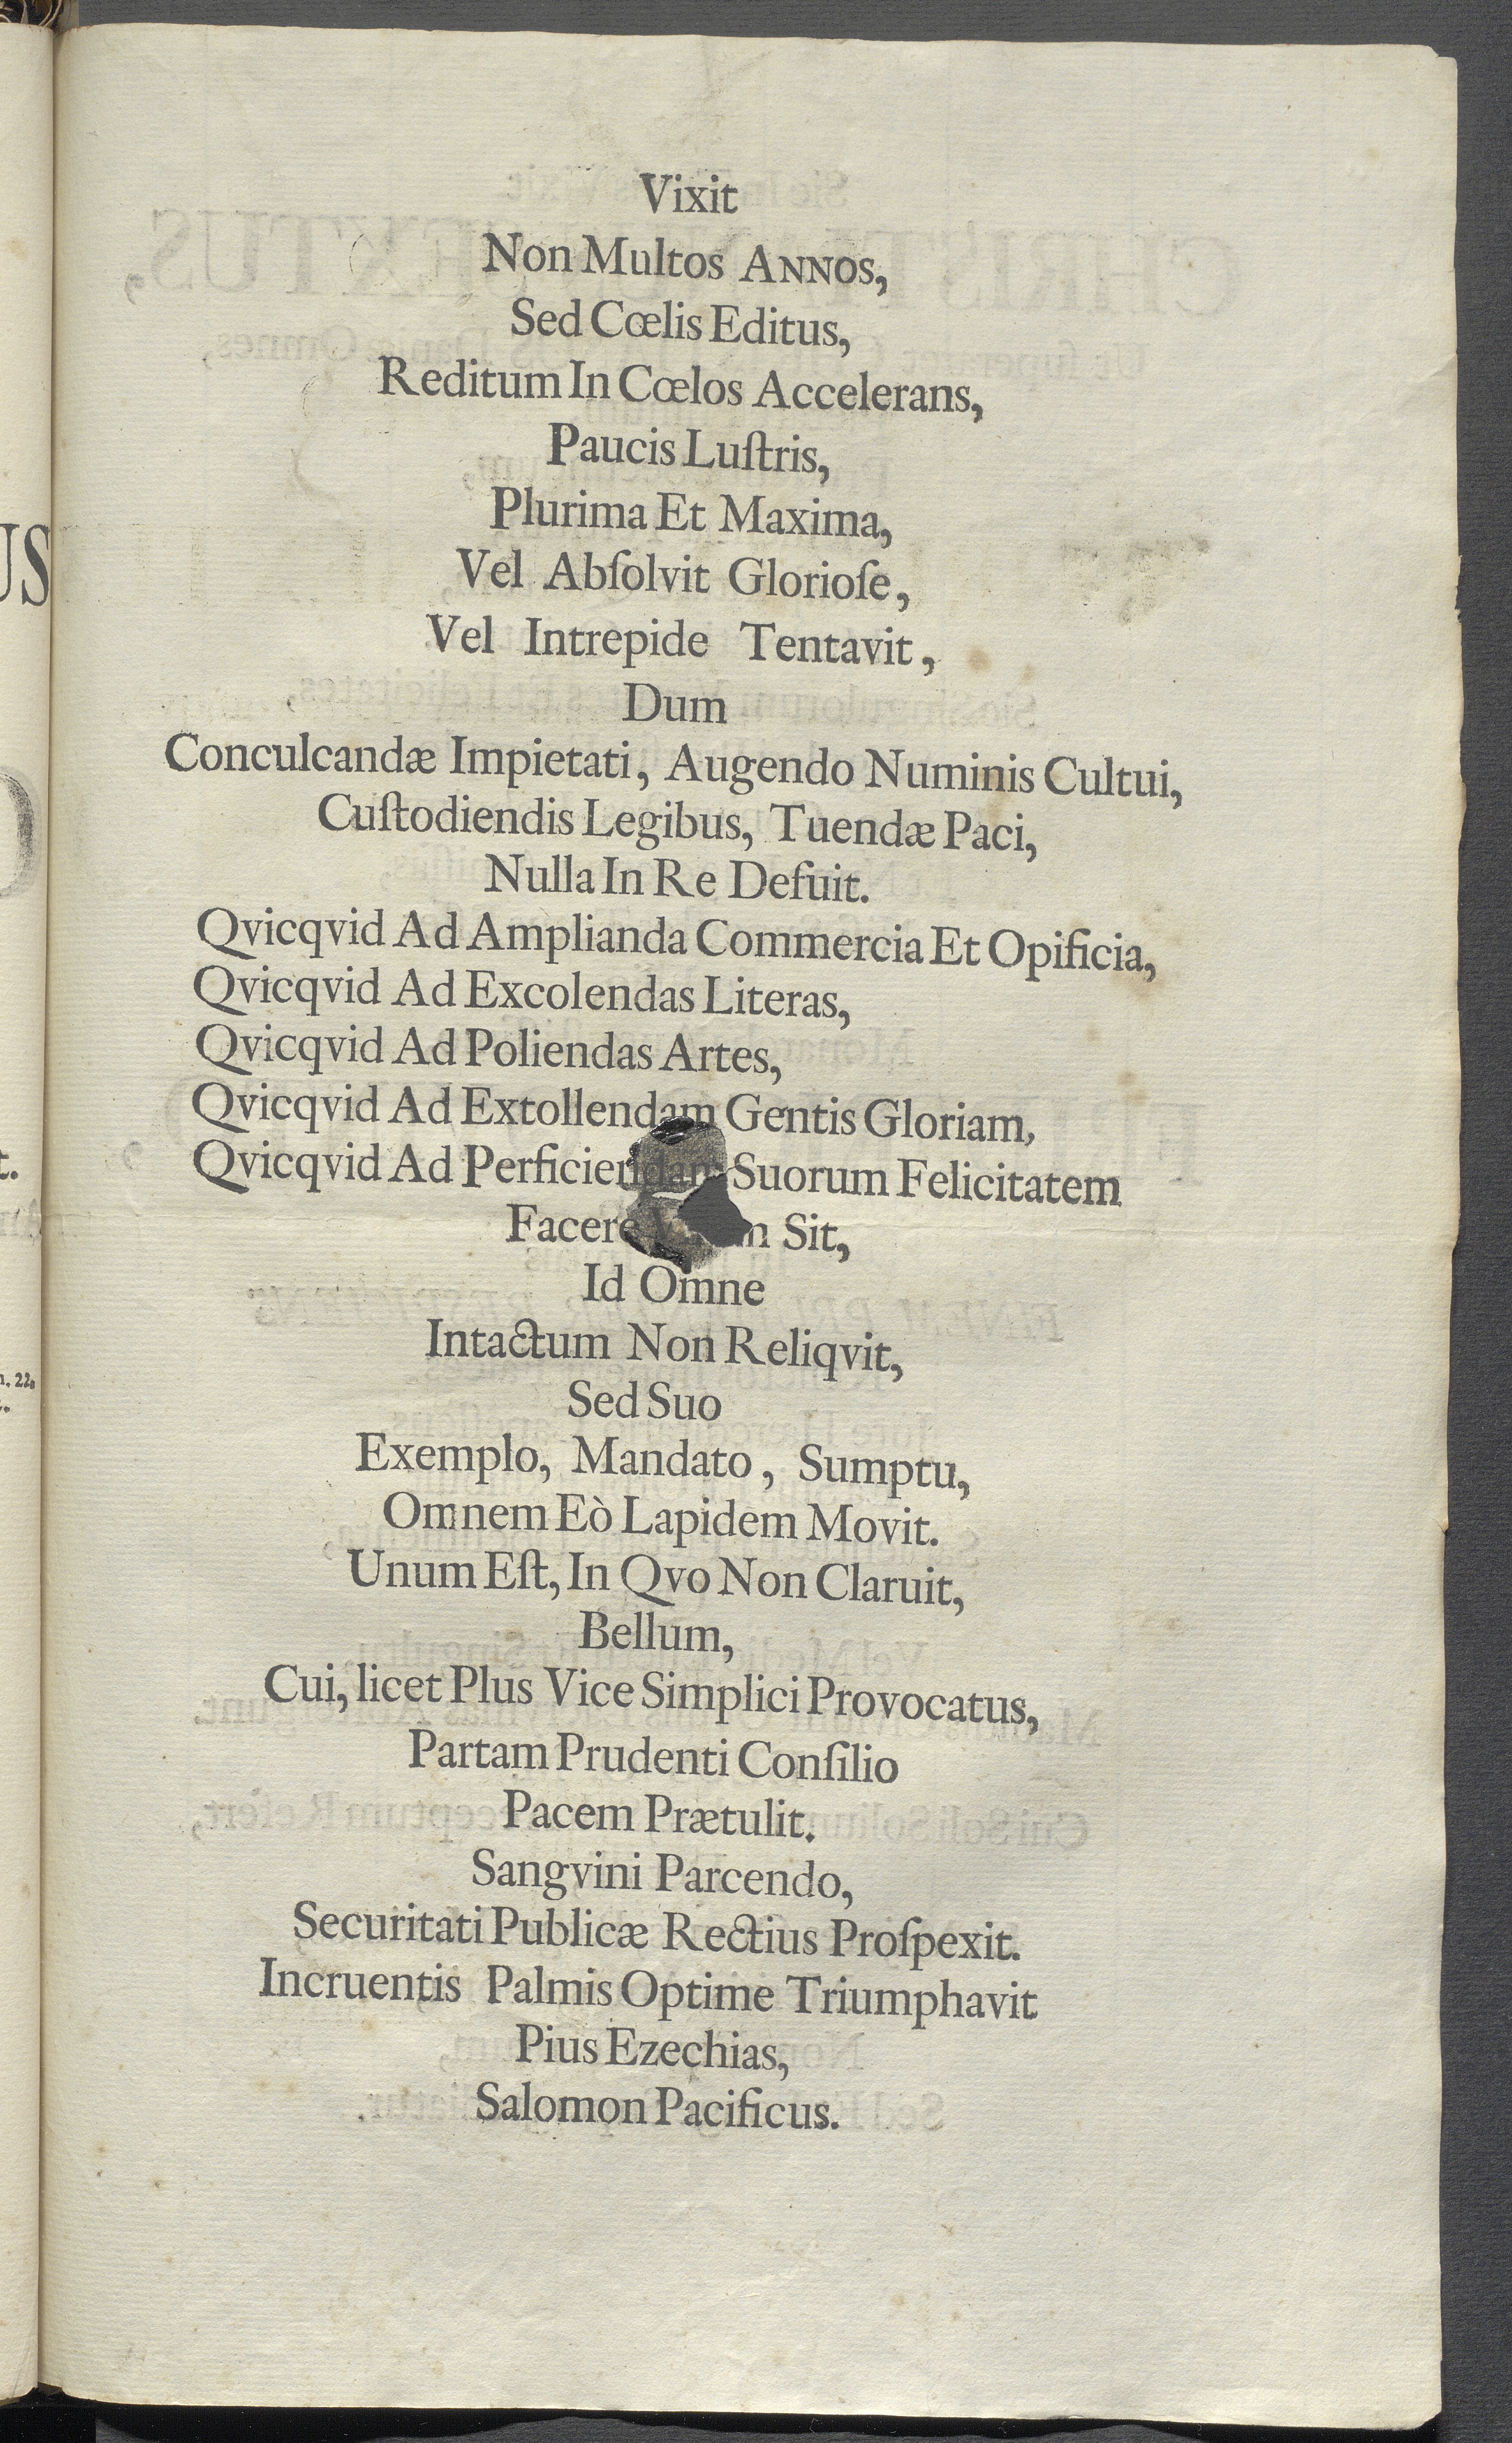 Vixit
Non Multos ANNOS,
Sed Cœlis Editus,
Reditum In Cœlos Accelerans,
Paucis Luſtris,
Plurima Et Maxima,
Vel Abſolvit Glorioſe,
Vel Intrepide Tentavit,
Dum
Conculcandæ Impietati, Augendo Numinis Cultui,
Cuſtodiendis Legibus, Tuendæ Paci,
Nulla In Re Defuit.
Qvicqvid Ad Amplianda Commercia Et Opificia,
Qvicqvid Ad Excolendas Literas,
Qvicqvid Ad Poliendas Artes,
Qvicqvid Ad Extollendam Gentis Gloriam,
Qvicqvid Ad Perficiendam Suorum Felicitatem
Facere Sit,
Id Omne
Intactum Non Reliqvit,
Sed Suo
Exemplo, Mandato, Sumptu,
Omnem Eò Lapidem Movit.
Unum Eſt, In Qvo Non Claruit,
Bellum,
Cui, licet Plus Vice Simplici Provocatus,
Partam Prudenti Conſilio
Pacem Prætulit.
Sangvini Parcendo,
Securitati Publicæ Rectius Proſpexit.
Incruentis Palmis Optime Triumphavit
Pius Ezechias,
Salomon Pacificus.